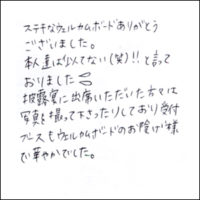 ステキなウェルカムボードありがとう
ございました。
本人達は"似てない(笑)!!と言って
おりました
披露宴に出席いただいた方々は
写真を撮って下さったりしており受付
ブースもウェルカムボードのお陰げ様
で華やかでした。